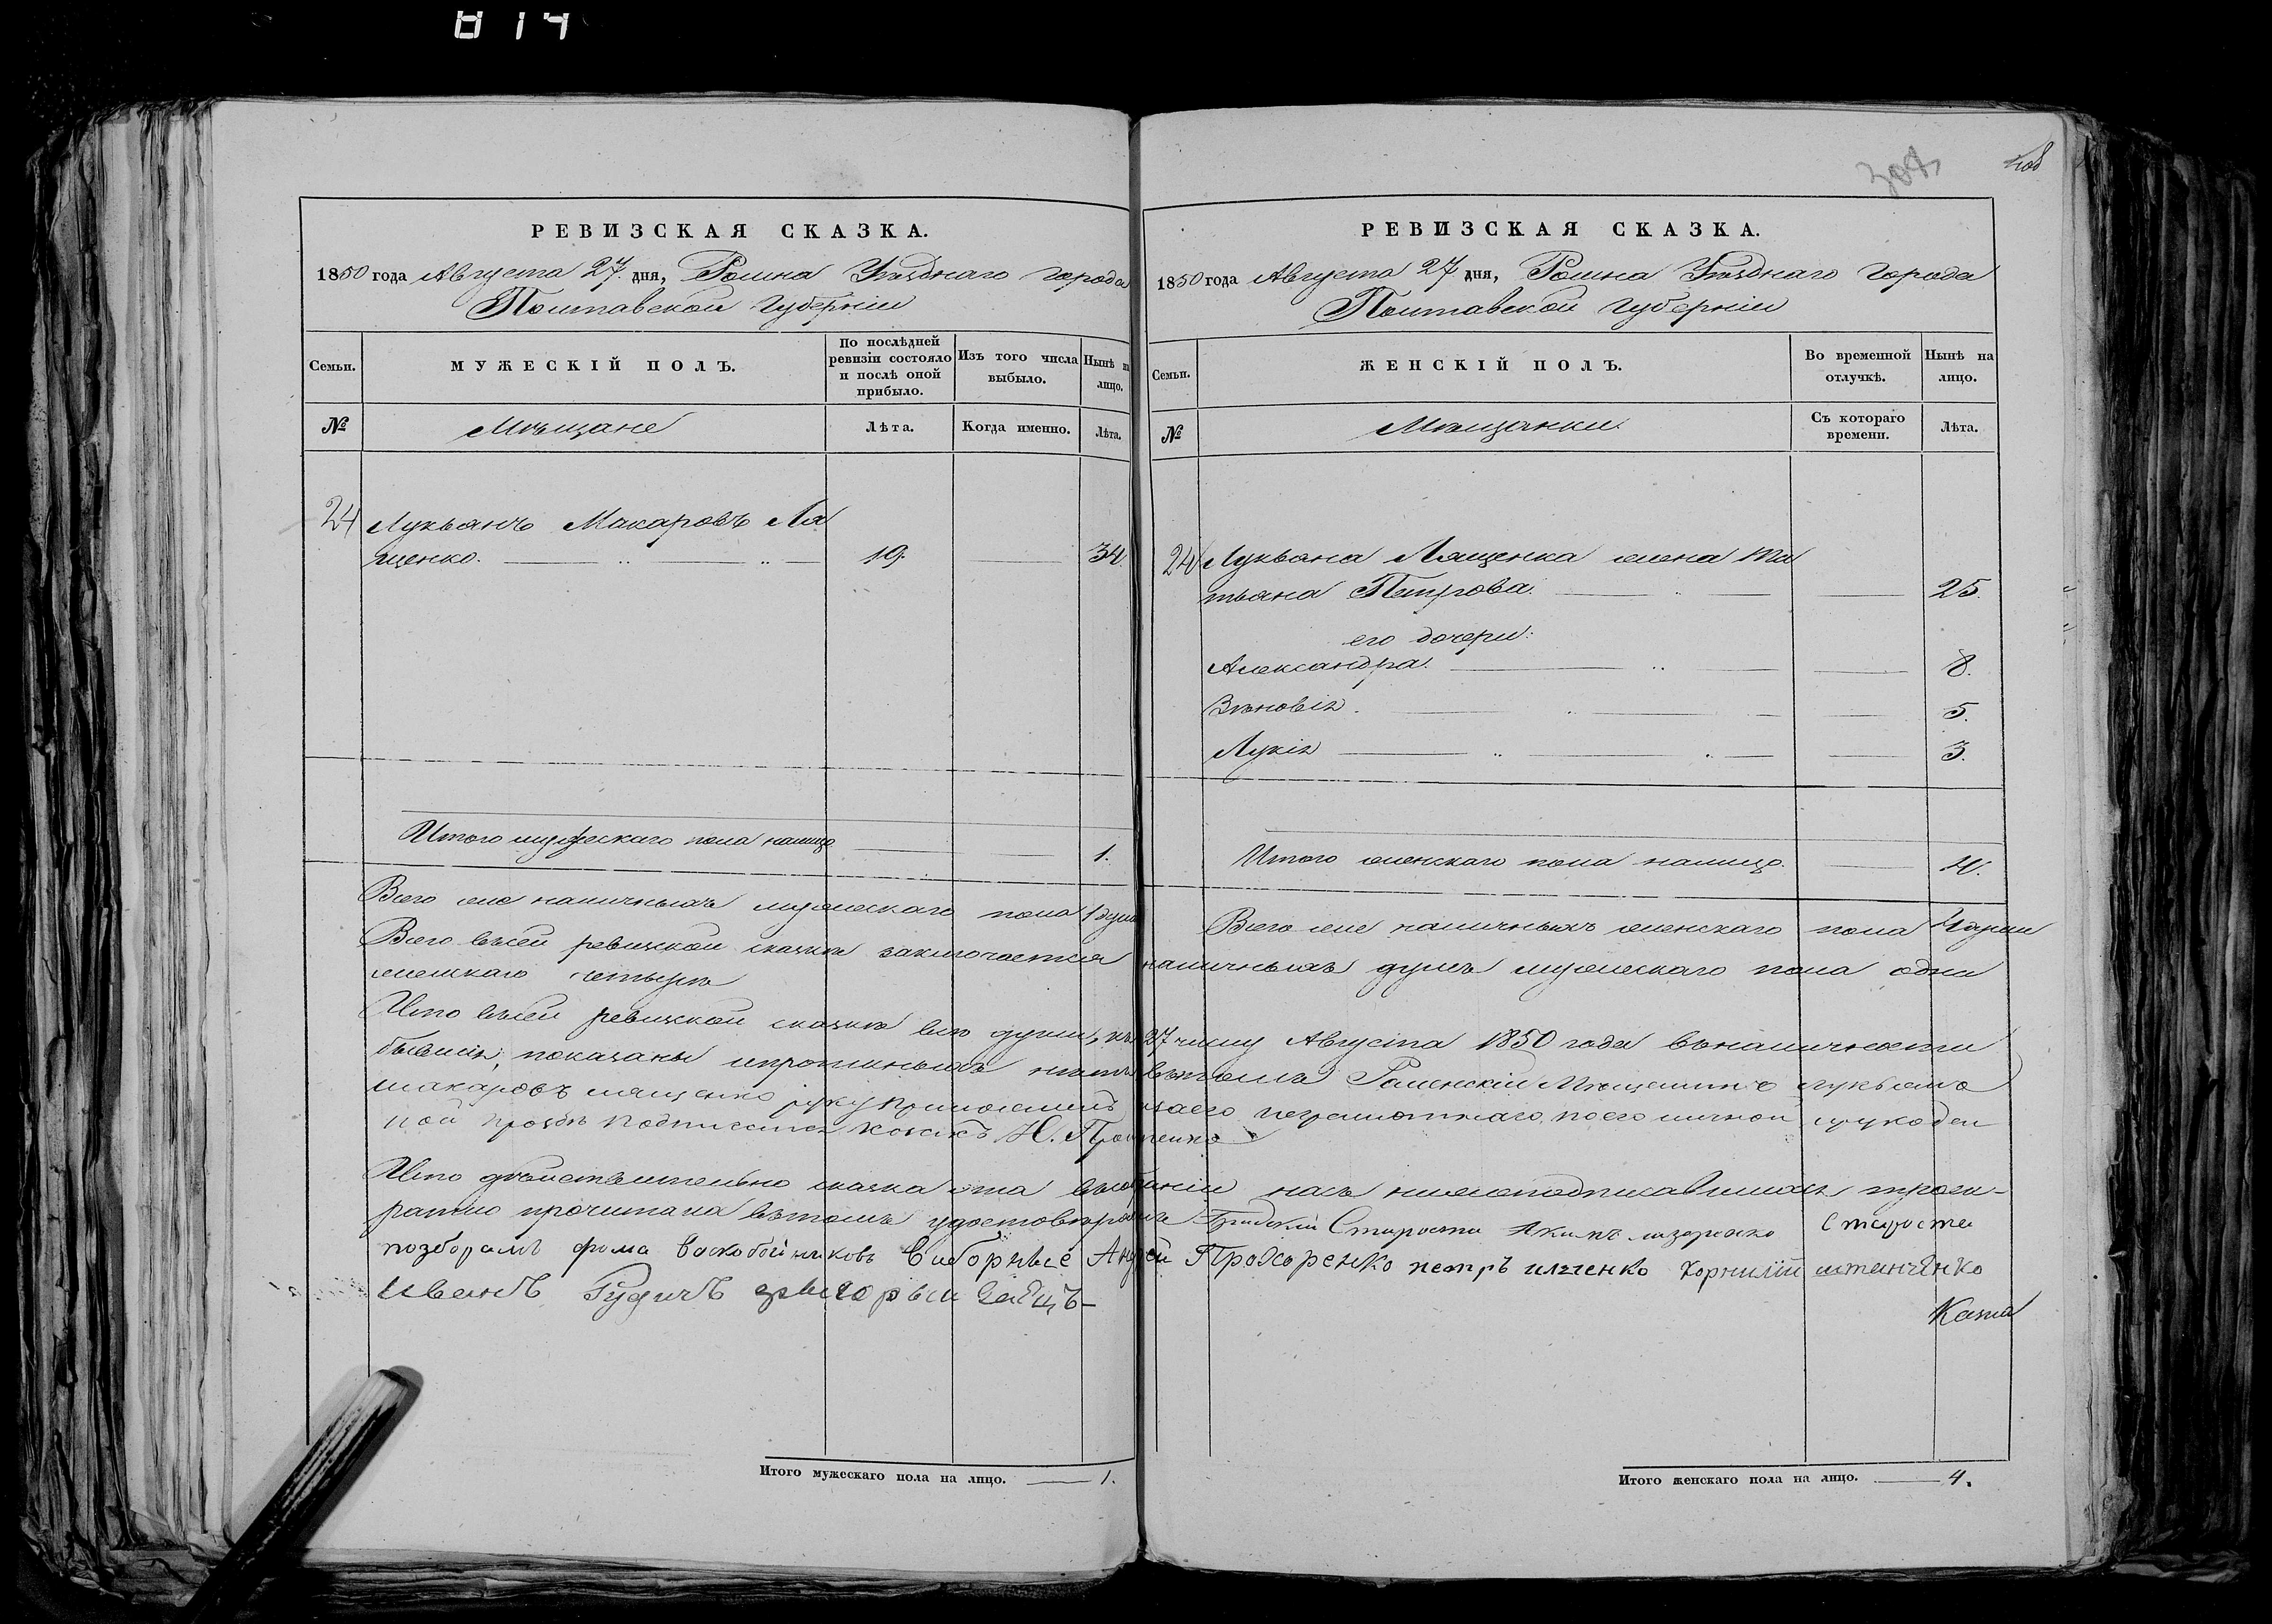 814
308
408
РЕВИЗСКАЯ СКАЗКА.
1850 года Августа 27 дня, Ромна Уѣзднаго города
Полтавской Губерніи
Семьи.
МУЖЕСКІЙ ПОЛЪ.
По послѣдней ревизіи состояло и послѣ оной прибыло.
Изъ того числа выбыло.
Нынѣ на лицо.
№
Мѣщане
Лѣта.
Когда именно.
Лѣта.
24 Лукьянъ Макаровъ Ля
щенко. 19. 34.
Итого мужескаго пола налицо 1.
Всего же наличныхъ мужескаго пола 1 душа
РЕВИЗСКАЯ СКАЗКА.
1850 года Августа 27 дня, Ромна Уѣзднаго города
Полтавской Губерніи
Семьи.
ЖЕНСКІЙ ПОЛЪ.
Во временной отлучкѣ.
Нынѣ на лицо.
№
Мѣщанки
Съ котораго времени.
Лѣта.
24 Лукьяна Лященка жена Та
тьяна Петрова. 25.
его дочери:
Александра. 8.
Зѣновія. 5.
Лукія 3.
Итого женскаго пола налицо. 4.
Всего же наличныхъ женскаго пола 4 души
Всего въсей ревизской сказкѣ заключается наличныхъ душъ мужескаго пола одна
женскаго четыре
Что въсей ревизской сказкѣ всѣ души, къ 27 числу Августа 1850 года въналичности
бывшія, показаны ипрописныхъ нѣтъ вътомъ Роменскій Мѣщанинъ лукьянъ
макаровъ лященко руку приложилъ, заего неграмотнаго, поего личной рукодан
ной прозбѣ подписался козакъ Н.
Что дѣйствительно сказка эта въсобраніи насъ нижеподписавшихся трое-
ратно прочитана вътомъ удостовѣряемъ Градскій Староста Акимъ лазаренко Староста
позборамъ фома Васкобойниковъ Виборные Андрей Прохоренко петръ илченко Корнилій
иванъ Рудичъ григорьи Заецъ
Казна
Итого мужескаго пола на лицо. 1.
Итого женскаго пола на лицо. 4.